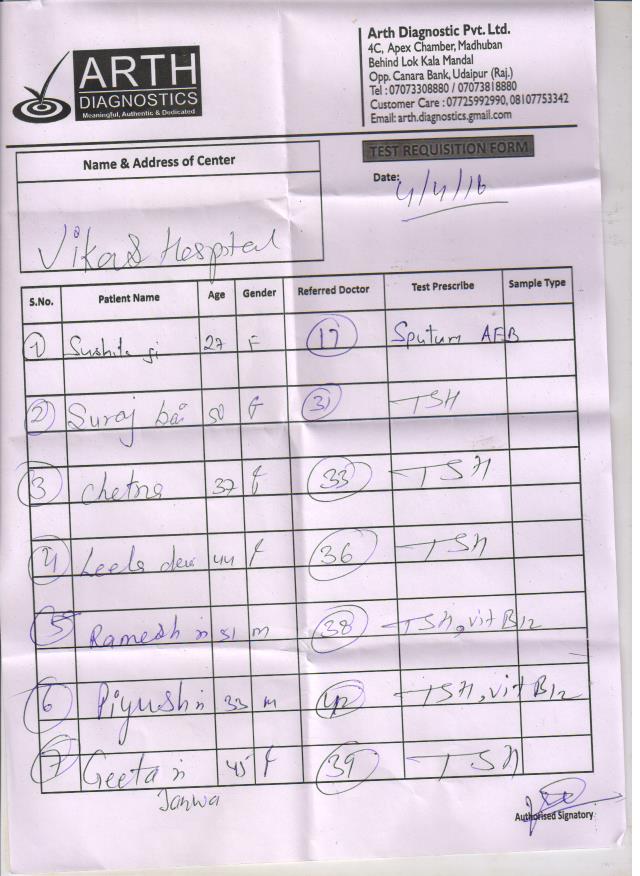 ARTH
DIAGNOSTICS
Meaningful, Authentic & Dedicated
Arth Diagnostic Pvt. Ltd.
4C, Apex Chamber, Madhuban
Behind Lok Kala Mandal
Opp. Canara Bank, Udaipur (Raj.)
Tel : 07073308880 / 07073818880
Customer Care : 07725992990, 08107753342
Email: arth.diagnostics.gmail.com
TEST REQUISITION FORM
Name & Address of Center
Date: 4/4/16
Vikas Hospital
S.No. Patient Name Age Gender Referred Doctor Test Prescribe Sample Type
1 Sushita ji 27 F 17 Sputum AFB
2 Suraj bai 50 F 31 TSH
3 Chetna 37 f 33 TSH
4 Leela devi 44 f 36 TSH
5 Ramesh ji 51 m 38 TSH, vit B12
6 Piyush ji 33 m 42 TSH, vit B12
7 Geeta ji 45 f 39 TSH
Janwa
Authorised Signatory